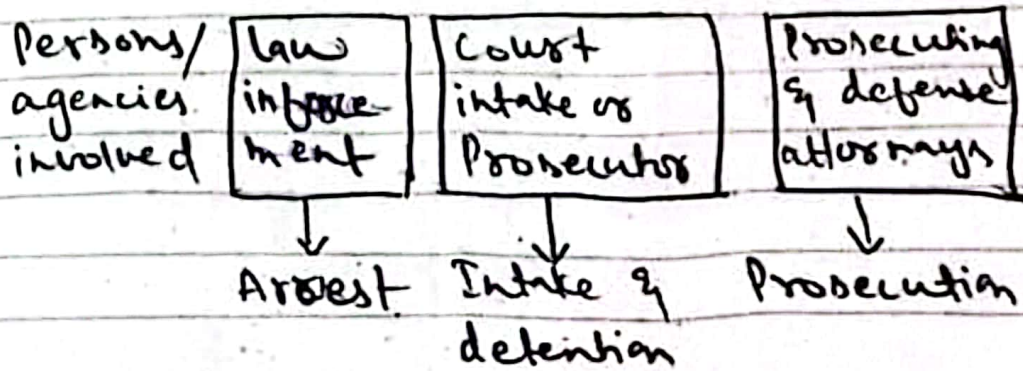 Persons/
agencies
involved
law
inforce-
ment
Court
intake or
Prosecutor
Prosecuting
& defense
attornays
Arrest
Intake &
detention
Prosecution